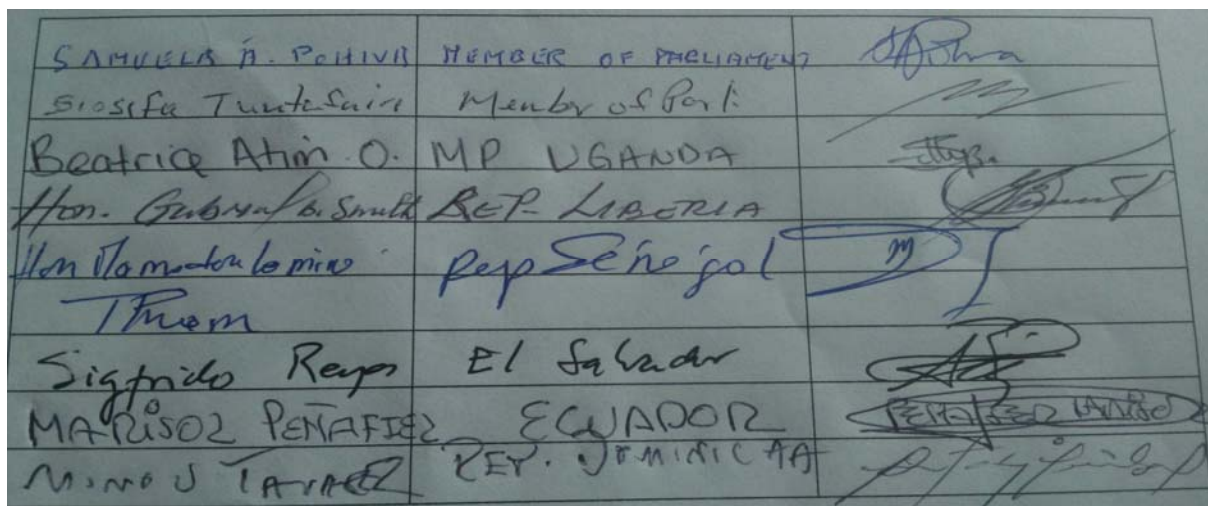 SAMUELA A. POHIVA MEMBER OF PARLIAMENT
Siosifa Member of Parl.
Beatrice Atim O. MP UGANDA
Hon. Gabriel B. Smith REP- LIBERIA
Hon Mamadou Lamine Rep Sénégal
Thiam
Sigfrido Reyes El Salvador
MARISOL PEÑAFIEL ECUADOR PEÑAFIEL
MINOU TAVAREZ REP. DOMINICANA